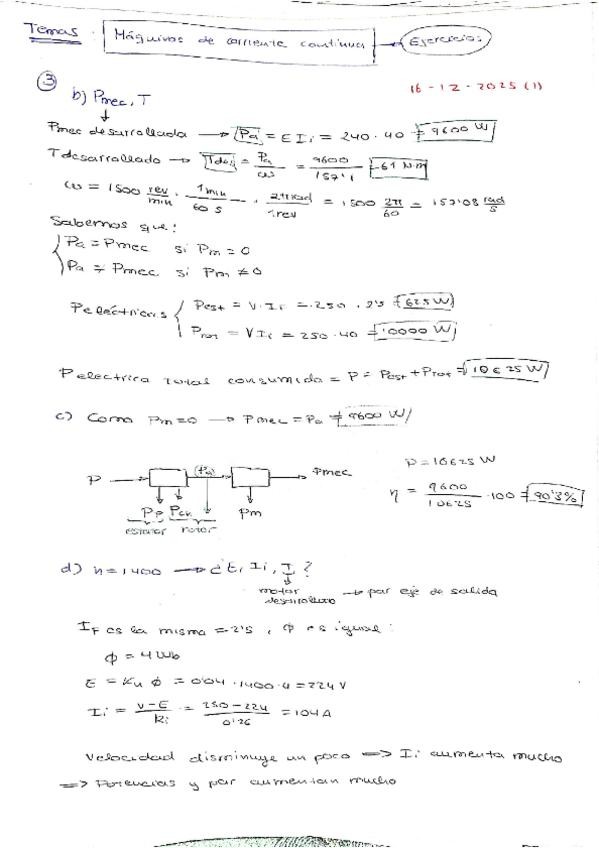 Temas. Máquinas de corriente continua → Ejercicios
16-12-2025 (1)
③
b) Pmec, T
Pmec desarrollada → Pa = E Ii = 240·40 = 9600 W
Tdesarrollado → Tdes = Pa/ω = 9600/157'1 = 61 N·m
ω = 1500 rev/min · 1min/60 s · 2π rad/1 rev = 1500 2π/60 = 157'08 rad/s
Sabemos que:
Pa = Pmec si Pm = 0
Pa ≠ Pmec si Pm ≠ 0
Peléctricas { Pest = V·Ii = 250·2'5 = 625 W
Prot = V Ii = 250·40 = 10000 W
Pelectrica total consumida = P = Pest + Prot = 10625 W
c) Como Pm=0 → Pmec = Pa = 9600 W
P → (Pa) → Pmec
Pp Pcu Pm
estator rotor
P = 10625 W
η = 9600/10625 · 100 = 90'3%
d) n = 1400 → ¿E, Ii, T?
motor → par eje de salida
desarrollado
IF es la misma = 2'5, φ es igual:
φ = 4 Wb
E = Kn φ = 0'04·1400·4 = 224 V
Ii = V-E/Ri = 250-224/0'26 = 104 A
Velocidad disminuye un poco ⇒ Ii aumenta mucho
⇒ Potencias y par aumentan mucho